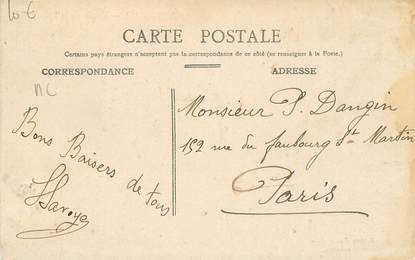 10 €
CARTE POSTALE
Certains pays étrangers n'acceptent pas la correspondance de ce côté (se renseigner à la Poste.)
CORRESPONDANCE
ADRESSE
NC
Bons Baisers de tous
Monsieur P. Dangin
152 rue du faubourg St Martin
Paris